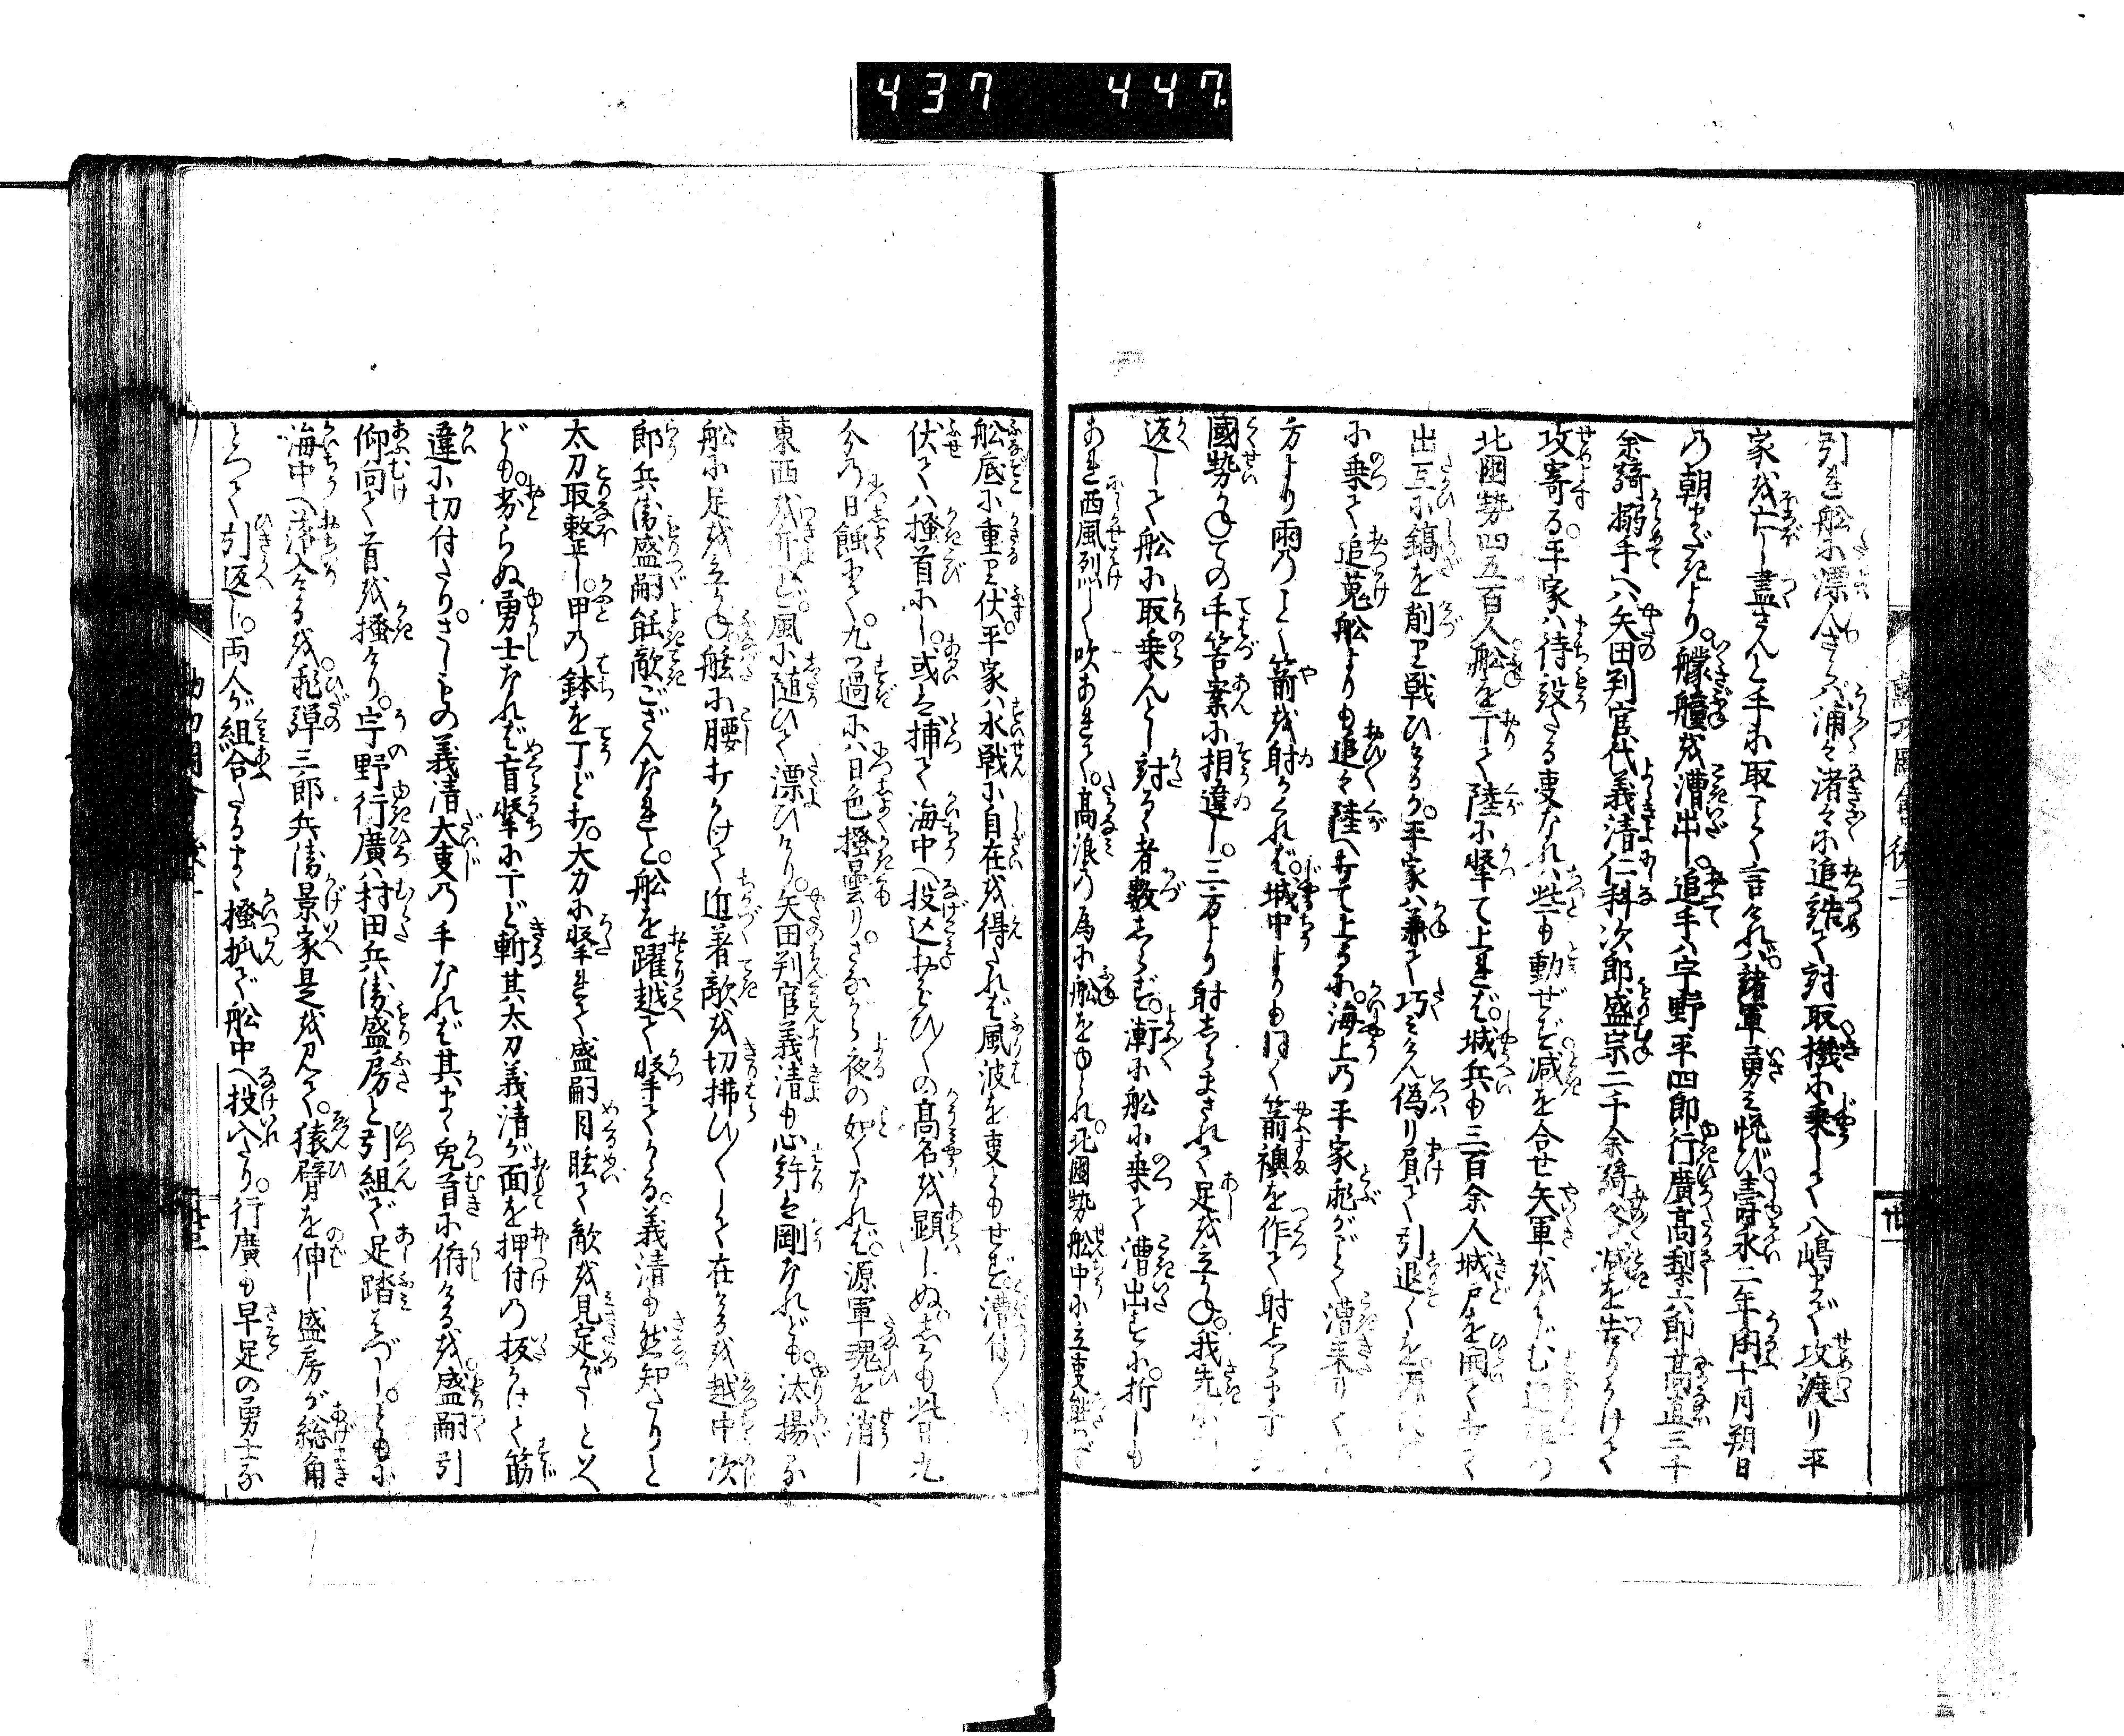 437 447
引き舩に漂んさらバ浦々渚々に追詰て討取機に乗して八嶋まで攻渡り平
家を亡し盡さんと手に取ごとく言けれバ諸軍勇ミ悦び壽永二年閏十月朔日
の朝まだきより艨艟を漕出し追手ハ宇野平四郎行廣高梨六郎高直三千
余騎搦手ハ矢田判官代義清仁科次郎盛宗二千余騎
攻寄る平家ハ待設たる叓なれバ些も動ぜず
北國勢四五百人舩を下て陸に挙て上れバ城兵も三百余人城戸を開て
出互に鎬を削り戦ひけるが平家ハ兼て巧ミけん偽り負て引退くを
に乗て追蒐舩よりも追々陸へ上るに海上の平家飛がごとく漕来り
方より雨のごとく箭を射かくれバ城中よりも同く箭襖を作て射
國勢かねての手筈案に相違し三方より射しらまされて足を立かね我先に
返して舩に取乗んとし討るゝ者数しらず漸に舩に乗て漕出すに折しも
あれ西風烈しく吹あれて高浪の為に舩をゆられ北國勢舩中に立叓
舩底に重り伏平家ハ水戦に自在を得たれバ風波を叓ともせず漕付〱
伏てハ掻首にし或ハ捕て海中へ投込おもひ〱の高名を顕しぬしかも此時九
分の日蝕にて九つ過にハ日色掻曇りさながら夜の如くなれバ源軍魂を消し
東西を弁へず風に随ひて漂ひけり矢田判官義清も心許ハ剛なれども汰揚る
舩に足を立かね舷に腰打かけて近着敵を切拂ひ〱して在けるを越中次
郎兵衛盛嗣能敵ござんなれと舩を躍越て撃てかゝる義清も然知たりと
太刀取整し甲の鉢を丁ど打大力に撃れて盛嗣目眩て敵を見定がたしといへ
ども劣らぬ勇士なれバ盲撃に丁ど斬其太刀義清が面を押付の板かけて筋
違に切付たりさしもの義清大叓の手なれバ其まゝ俛首に俯けるを盛嗣引
仰向て首を掻けり宇野行廣ハ村田兵衛盛房と引組で足踏はづしともに
海中へ落入けるを飛弾三郎兵衛景家是を見て猿臂を伸し盛房が総角
とつて引返し両人が組合たるまゝ掻抓で舩中へ投入たり行廣も早足の勇士な